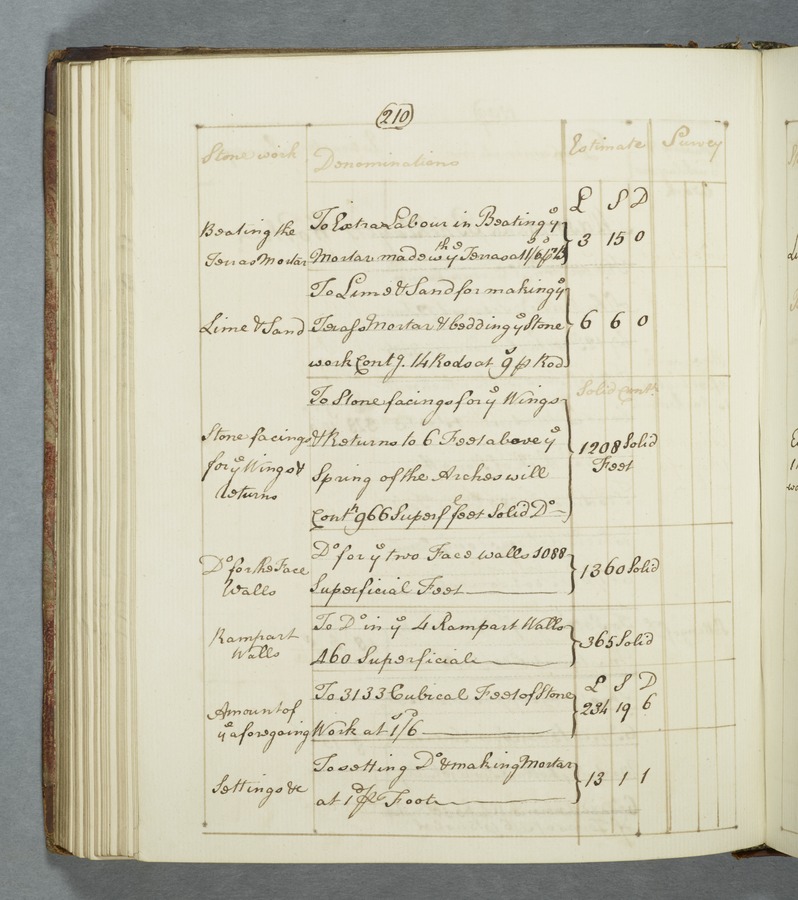 210
Stone work Denominations Estimate Survey
£ S D
Beating the
Terras Mortar
To Extra Labour in Beating yͤ
Mortar made wth yͤ Terras at
3 15 0
Lime & Sand
To Lime & Sand for making yͤ
Terass Mortar & bedding yͤ Stone
work Contg. 14 Rods at 9s p Rod
6 6 0
Solid Conts.
Stone facings
for yͤ Wings &
returns
To Stone facings for yͤ Wings
& Returns to 6 Feet above yͤ
Spring of the Arches will
Contn 966 Superfl feet Solid Do
1208 Solid
Feet
Do for the Face
Walls
Do for yͤ two Face walls 1088
Superficial Feet
1360 Solid
Rampart
Walls
To Do in yͤ 4 Rampart Walls
460 Superficial
365 Solid
£ S D
Amount of
yͤ aforegoing
To 3133 Cubical Feet of Stone
Work at 1s/6d
234 19 6
Settings &c
To setting Do & making Mortar
at 1d p Foot
13 1 1